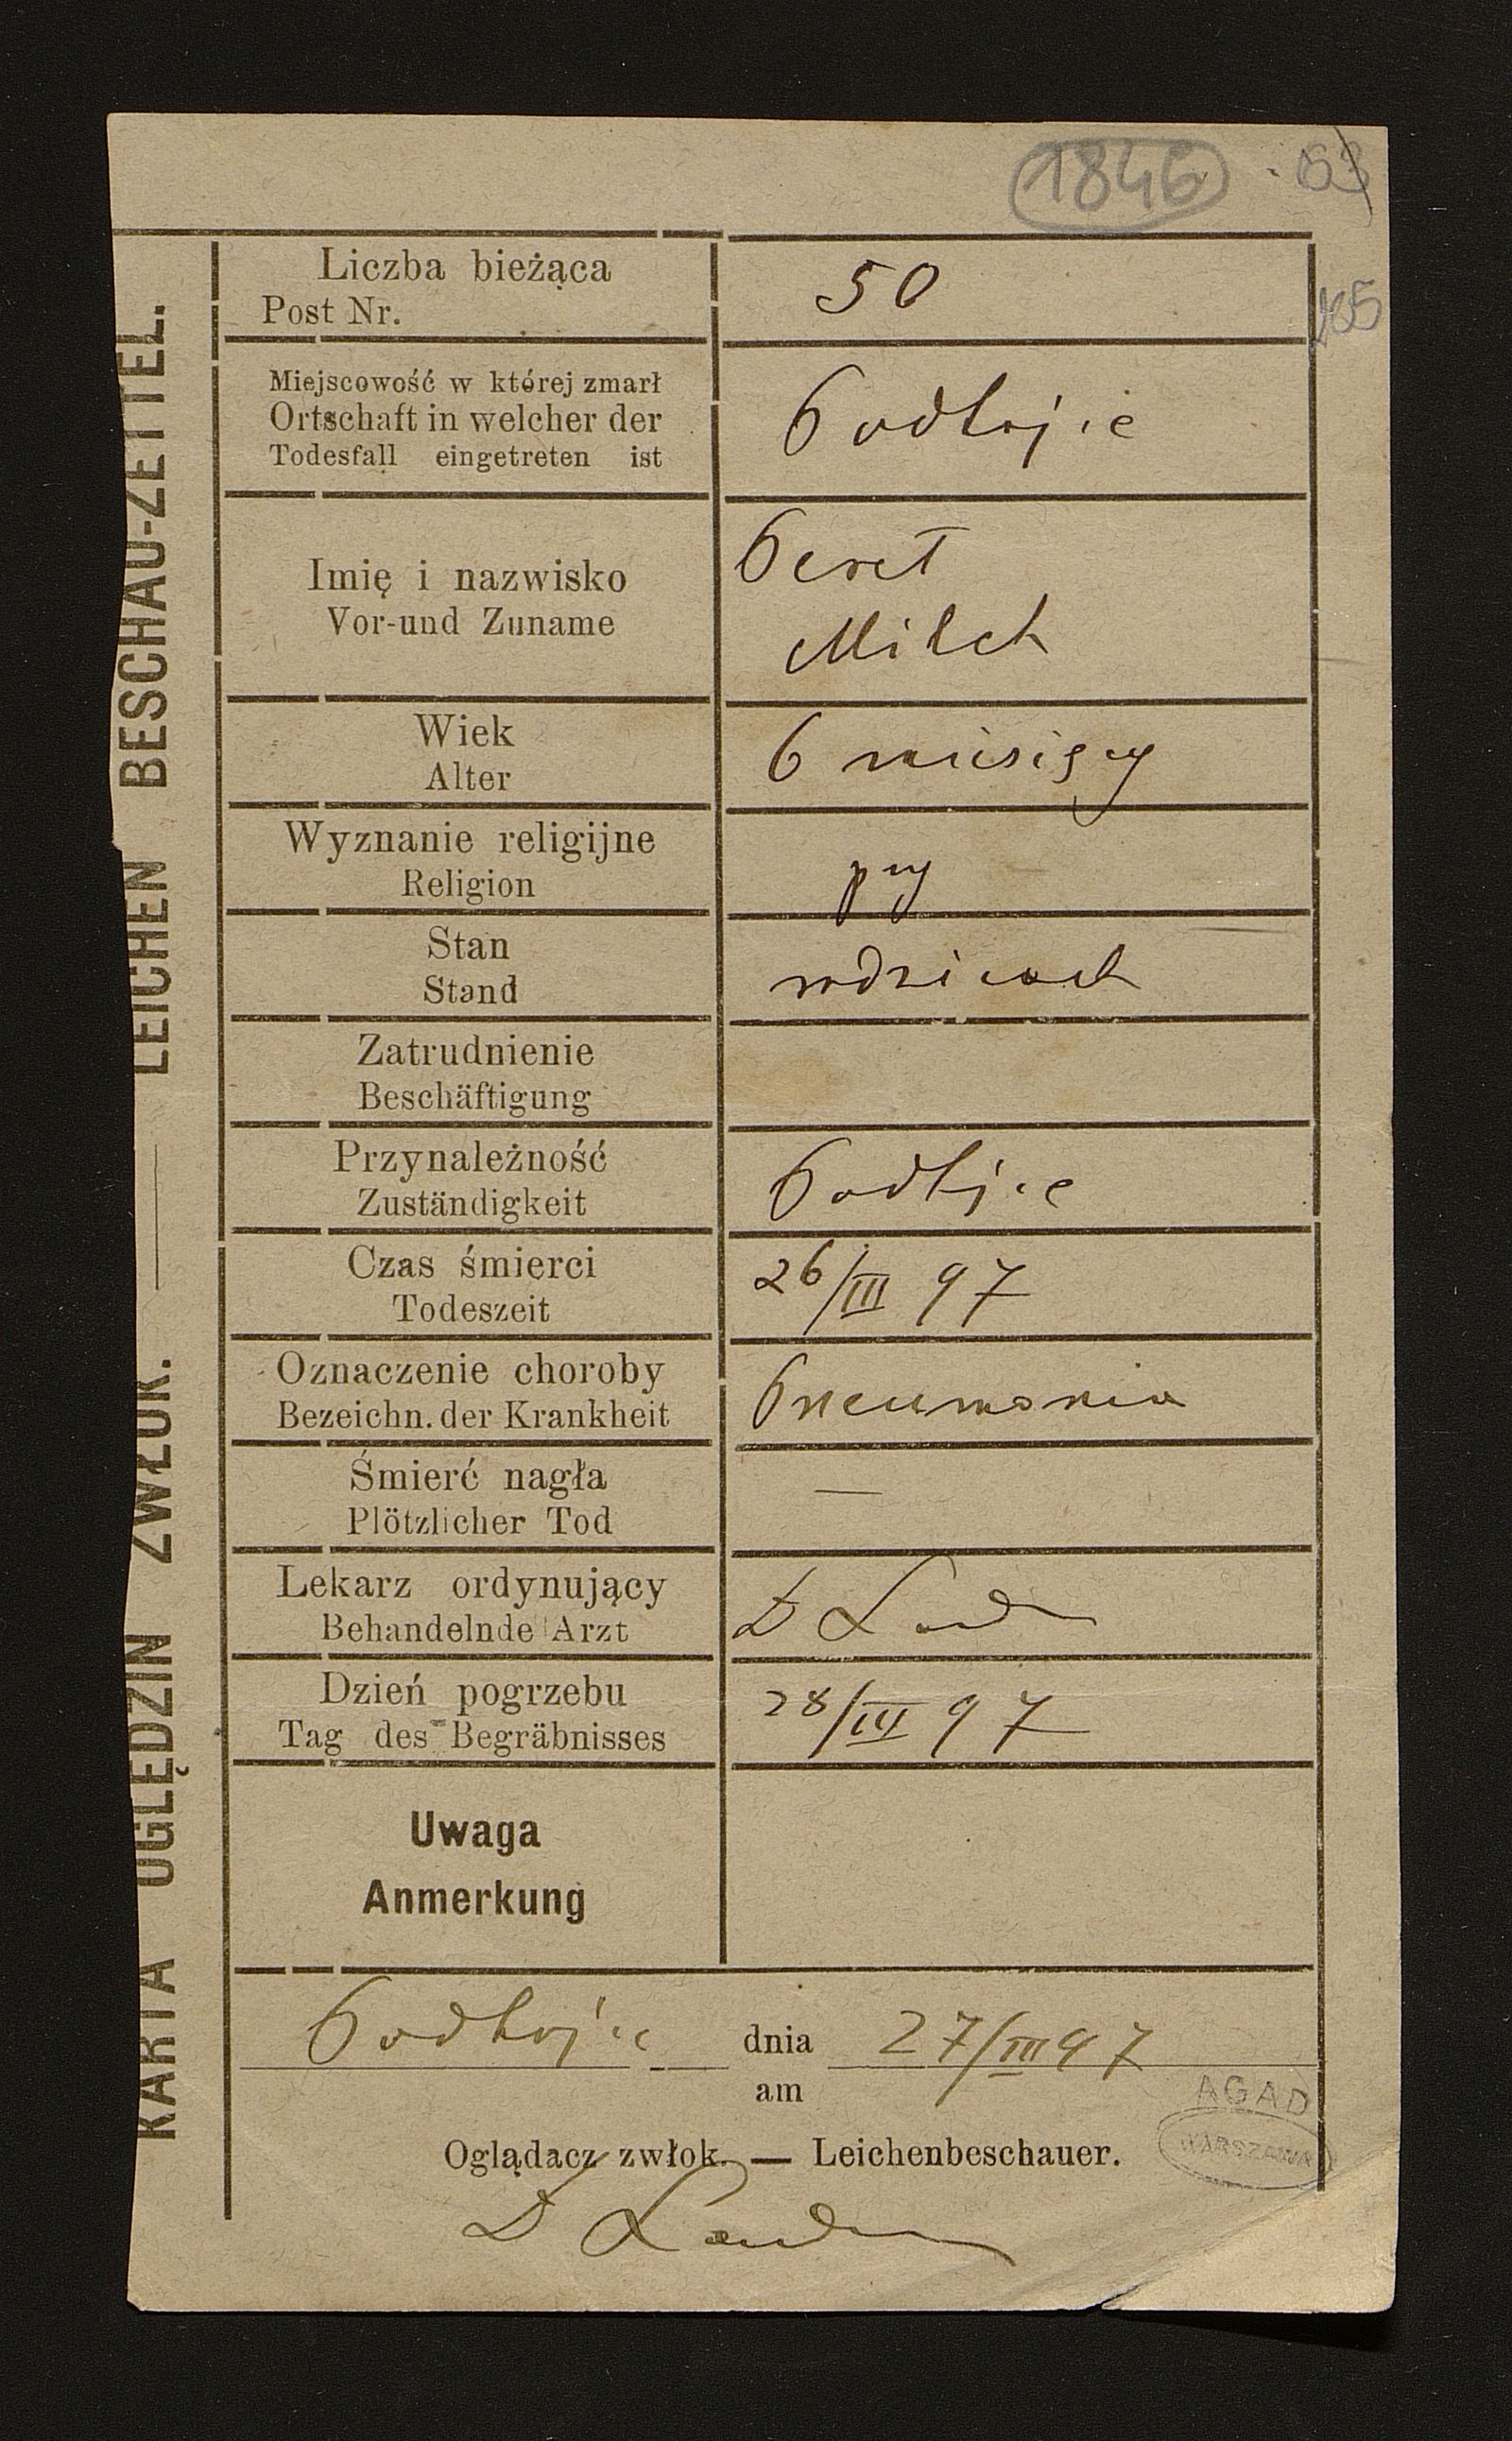 1846 · 53
Liczba bieżąca
Post Nr.
50
Miejscowość w której zmarł
Ortschaft in welcher der
Todesfall eingetreten ist
Podhajce
Imię i nazwisko
Vor-und Zuname
Peret
Milch
Wiek
Alter
6 miesięcy
Wyznanie religijne
Religion
przy
Stan
Stand
rodzicach
Zatrudnienie
Beschäftigung
Przynależność
Zuständigkeit
Podhjce
Czas śmierci
Todeszeit
26/III 97
Oznaczenie choroby
Bezeichn. der Krankheit
Pneumonia
Śmierć nagła
Plötzlicher Tod
—
Lekarz ordynujący
Behandelnde Arzt
D
Dzień pogrzebu
Tag des Begräbnisses
28/III 97
Uwaga
Anmerkung
Podhajce dnia 27/III 97
am
AGAD
WARSZAWA
Oglądacz zwłok. — Leichenbeschauer.
D
KARTA OGLĘDZIN ZWŁOK. — LEICHEN BESCHAU-ZETTEL.